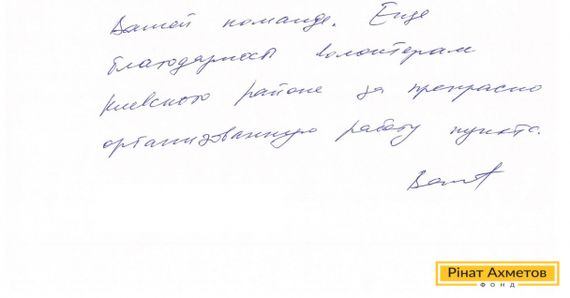 Вашей команде. Еще
благодарность волонтерам
Киевского района за прекрасно
организованную работу пункта.
Рінат Ахметов
ФОНД